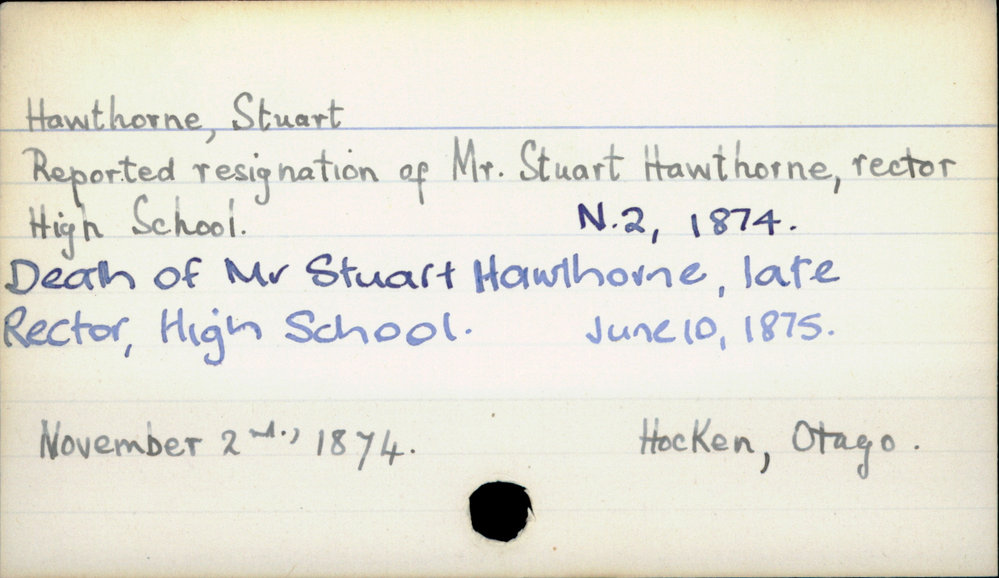 Hawthorne, Stuart
Reported resignation of Mr. Stuart Hawthorne, rector
High School. N.2, 1874.
Death of Mr Stuart Hawthorne, late
Rector, High School. June 10, 1875.
November 2nd., 1874. Hocken, Otago.